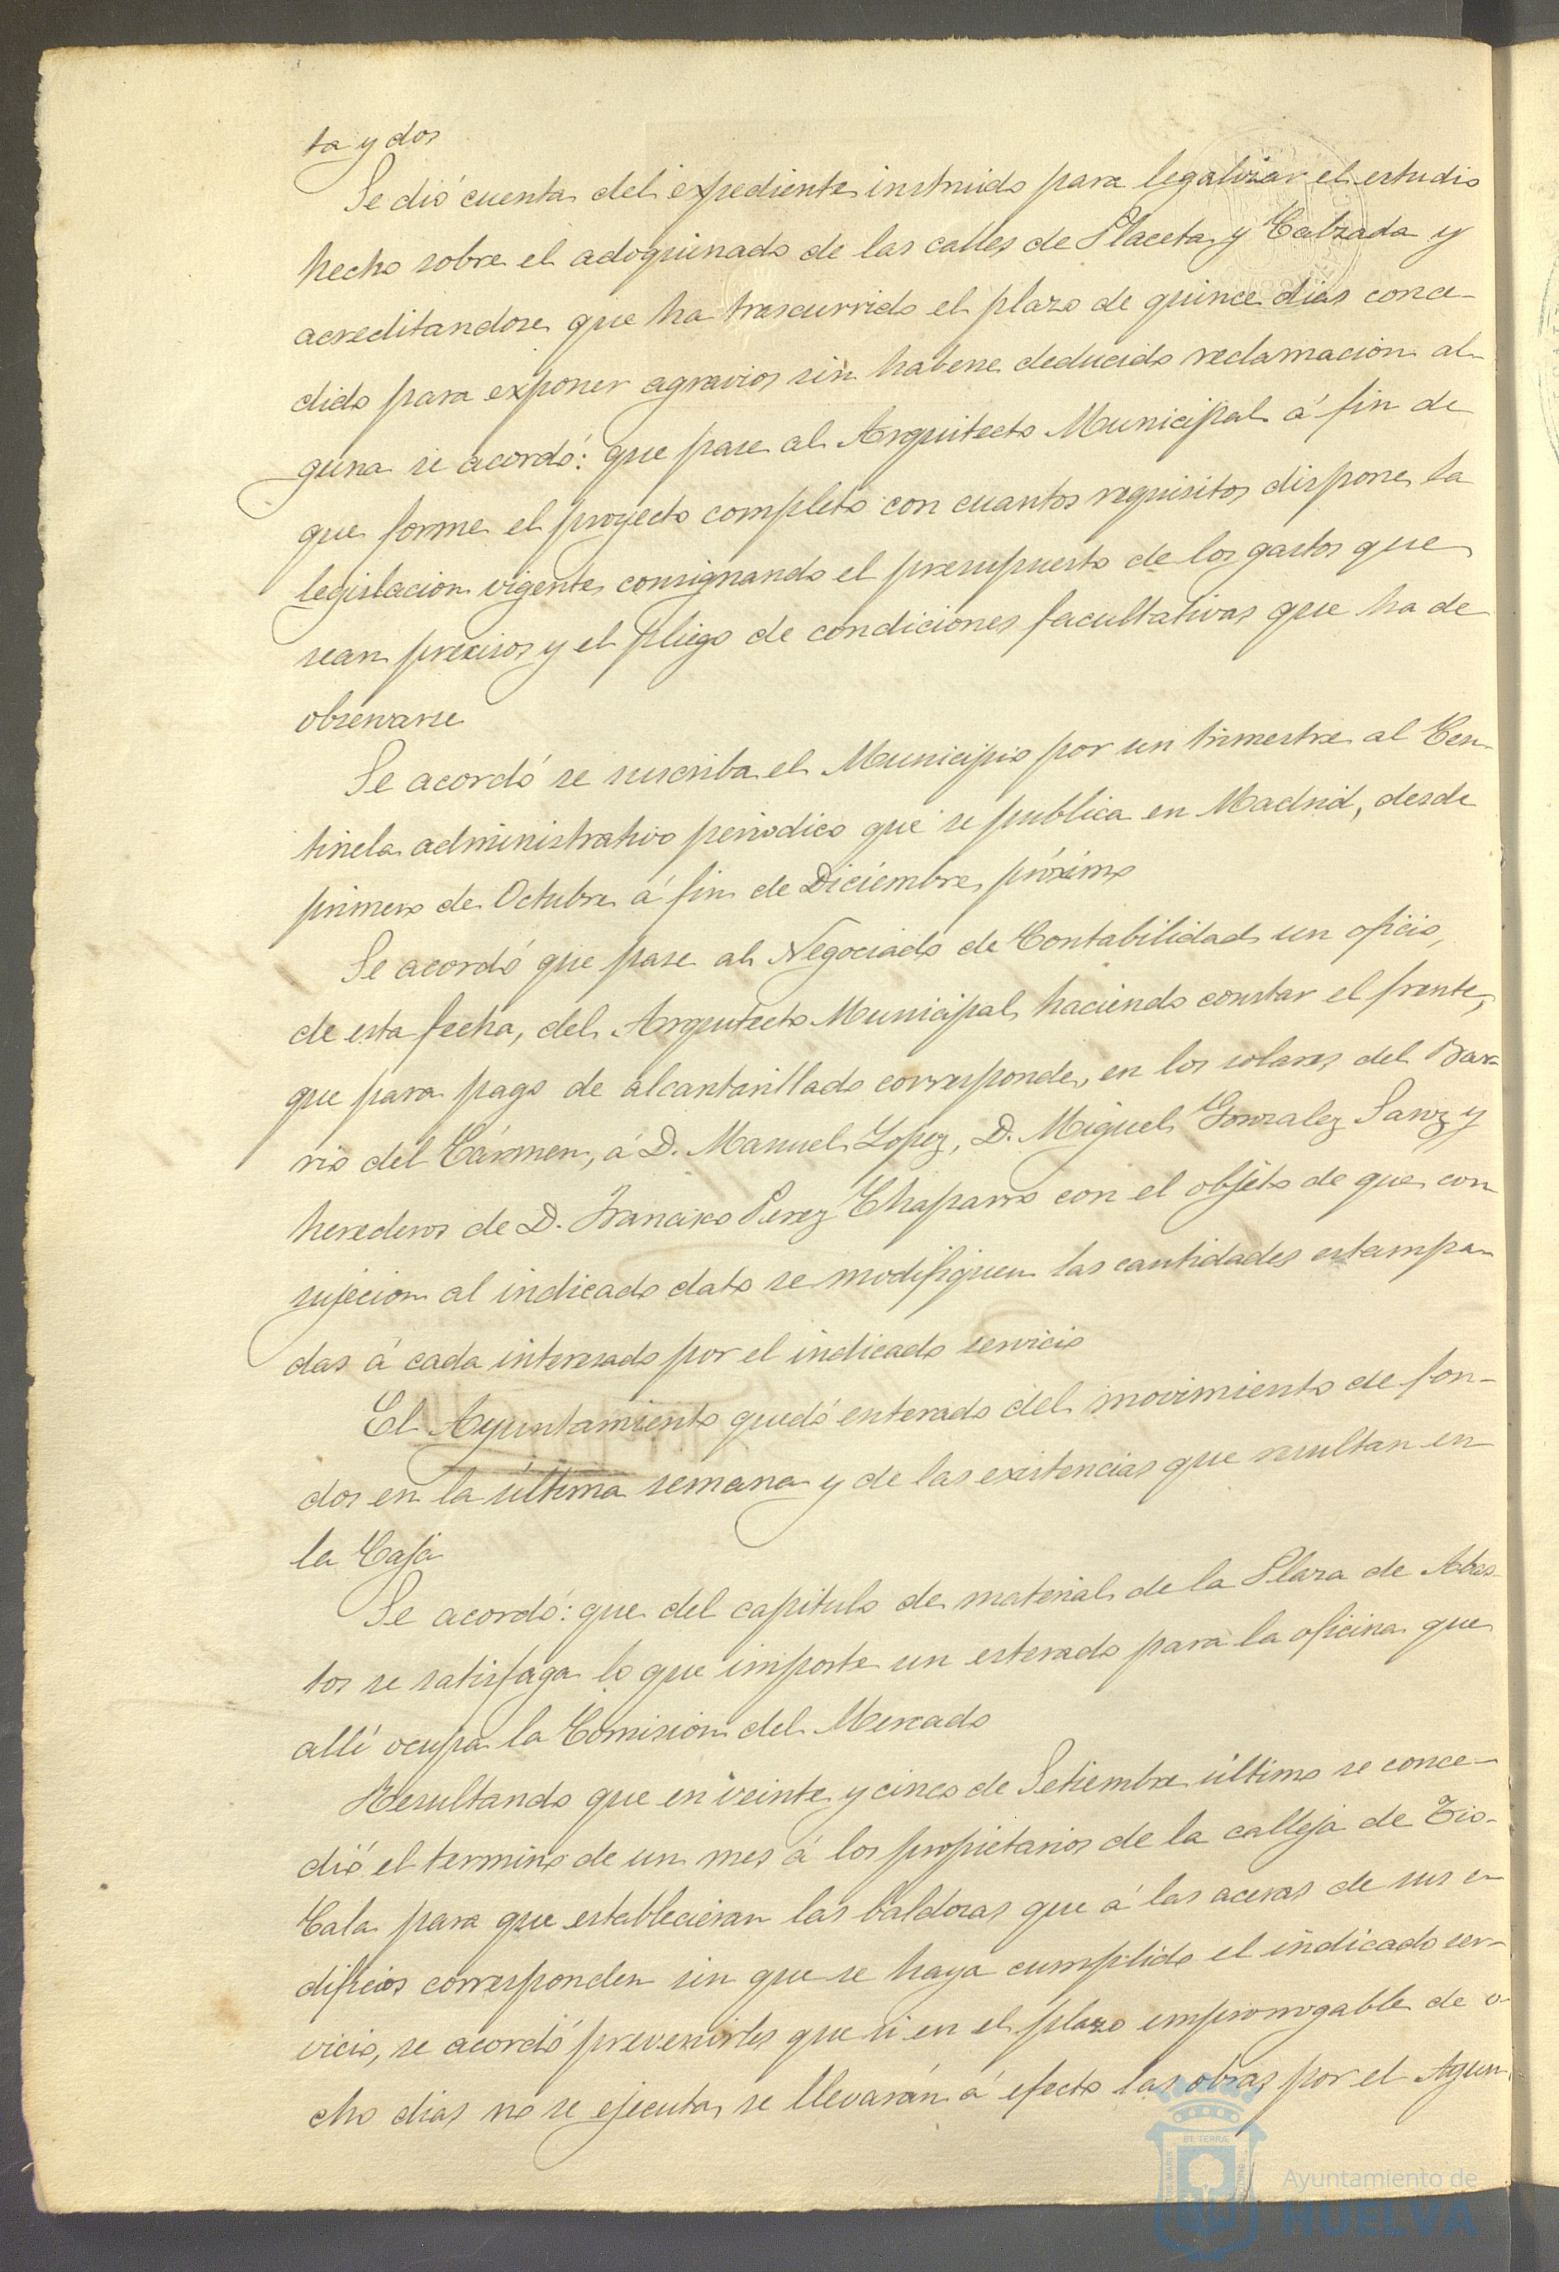 ta y dos
Se dió cuenta del expediente instruido para legalizar el estudio
hecho sobre el adoquinado de las calles de Placeta y Calzada y
acreditandose que ha trascurrido el plazo de quince dias conce-
dido para exponer agravios sin haberse deducido reclamacion al-
guna se acordó: que pase al Arquitecto Municipal á fin de
que forme el proyecto completo con cuantos requisitos dispone la
legislacion vigente consignando el presupuesto de los gastos que
sean precisos y el pliego de condiciones facultativas que ha de
observarse
Se acordó se suscriba el Municipio por un trimestre al Cen-
tinela administrativo periodico que se publica en Madrid, desde
primero de Octubre á fin de Diciembre próximo
Se acordó que pase al Negociado de Contabilidad un oficio,
de esta fecha, del Arquitecto Municipal haciendo constar el frente,
que para pago de alcantarillado corresponde, en los solares del Bar-
rio del Cármen, á D. Manuel Lopez, D. Miguel Gonzalez Sanz y
herederos de D. Francisco Perez Chaparro con el objeto de que con
sujecion al indicado dato se modifiquen las cantidades estampa-
das á cada interesado por el indicado servicio
El Ayuntamiento quedó enterado del movimiento de fon-
dos en la última semana y de las existencias que resultan en
la Caja
Se acordó: que del capitulo de material de la Plaza de Abas-
tos se satisfaga lo que importe un esterado para la oficina que
allí ocupa la Comision del Mercado
Resultando que en veinte y cinco de Setiembre último se conce-
dió el termino de un mes á los propietarios de la calleja de Tio-
Cala para que establecieran las baldosas que á las aceras de sus e-
dificios corresponden sin que se haya cumplido el indicado ser-
vicio, se acordó prevenirles que si en el plazo improrrogable de o-
cho dias no se ejecuta, se llevarán á efecto las obras por el Ayun-
Ayuntamiento de
HUELVA